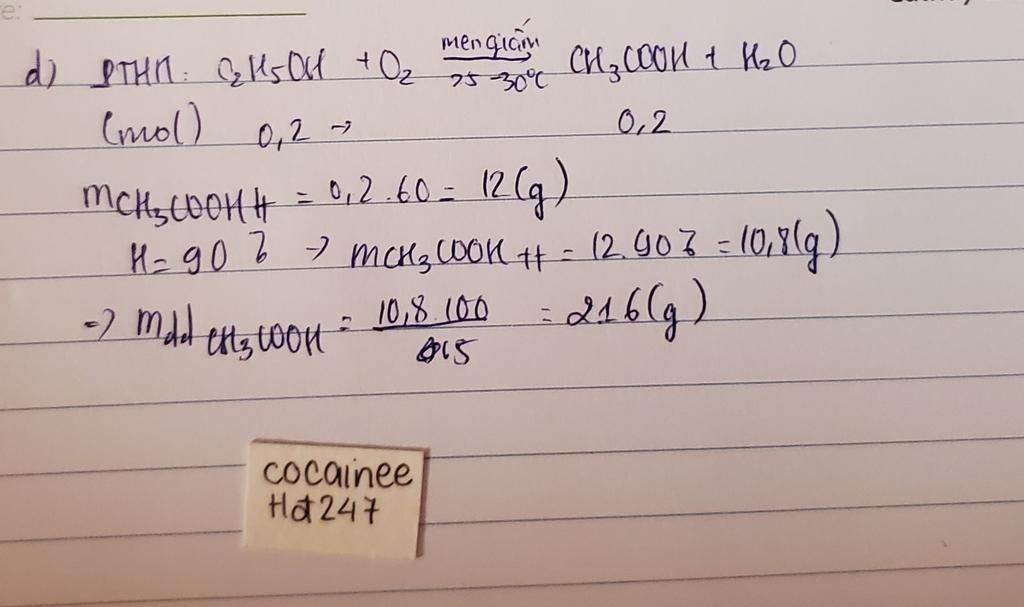 d) PTHH: C2H5OH + O2 men giấm CH3COOH + H2O
25-30°C
(mol) 0,2 → 0,2
mCH3COOH tt = 0,2.60 = 12(g)
H=90% → mCH3COOH tt = 12.90% = 10,8(g)
=> mdd CH3COOH = 10,8.100 = 216(g)
5
cocainee
Hot247